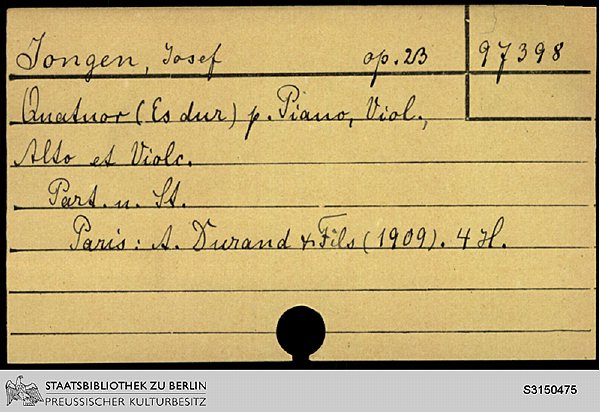 Jongen, Josef op. 23 97398
Quatuor (Es dur) p. Piano, Viol.,
Alto et Violc.
Part. u. St.
Paris: A. Durand & Fils (1909). 4 H.
STAATSBIBLIOTHEK ZU BERLIN
PREUSSISCHER KULTURBESITZ
S3150475